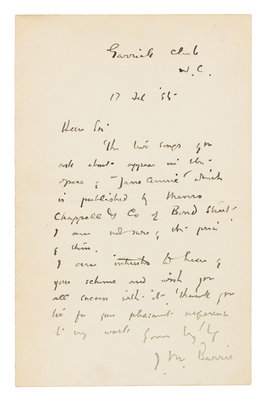 Garrick Club
W.C.
17 Feb '95
Dear Sir
The two songs you
ask about appear in the
opera of "Jane Annie" which
is published by Messrs
Chappell & Co of Bond Street.
I am not sure of the price
of this.
I am interested to hear of
your scheme and wish you
all success with it. Thank you
too for your pleasant reference
to my work
Yours truly
J. M. Barrie